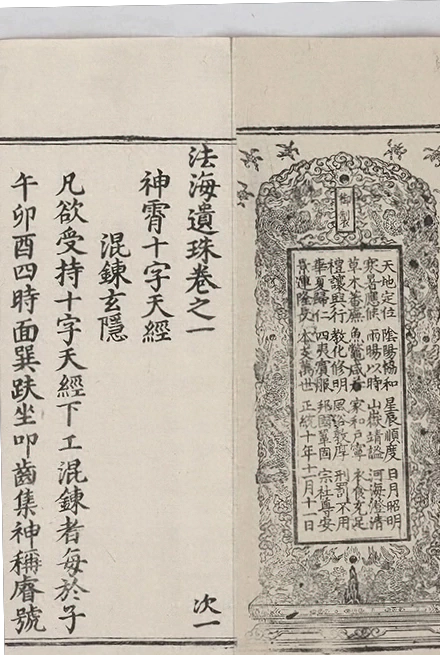 御製
天地定位 陰陽協和 星辰順度 日月昭明
寒暑應候 雨暘以時 山嶽靖謐 河海澄清
草木蕃廡 魚鱉咸若 家和戶寧 衣食充足
禮讓興行 教化修明 風俗敦厚 刑罰不用
華夏歸仁 四夷賓服 邦國鞏固 宗社尊安
景運隆長 本支萬世 正統十年十一月十一日
法海遺珠卷之一 次一
神霄十字天經
混鍊玄隱
凡欲受持十字天經下工混鍊者每於子
午卯酉四時面巽趺坐叩齒集神稱號